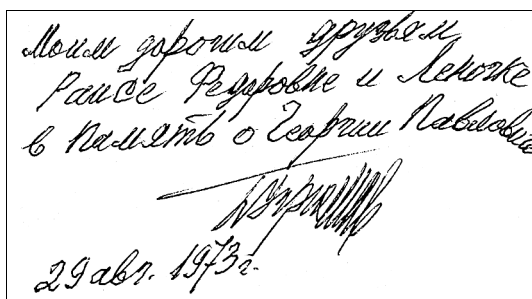 Моим дорогим друзьям
Раисе Федоровне и Леночке
в память о Георгии Павловиче
29 авг. 1973 г.